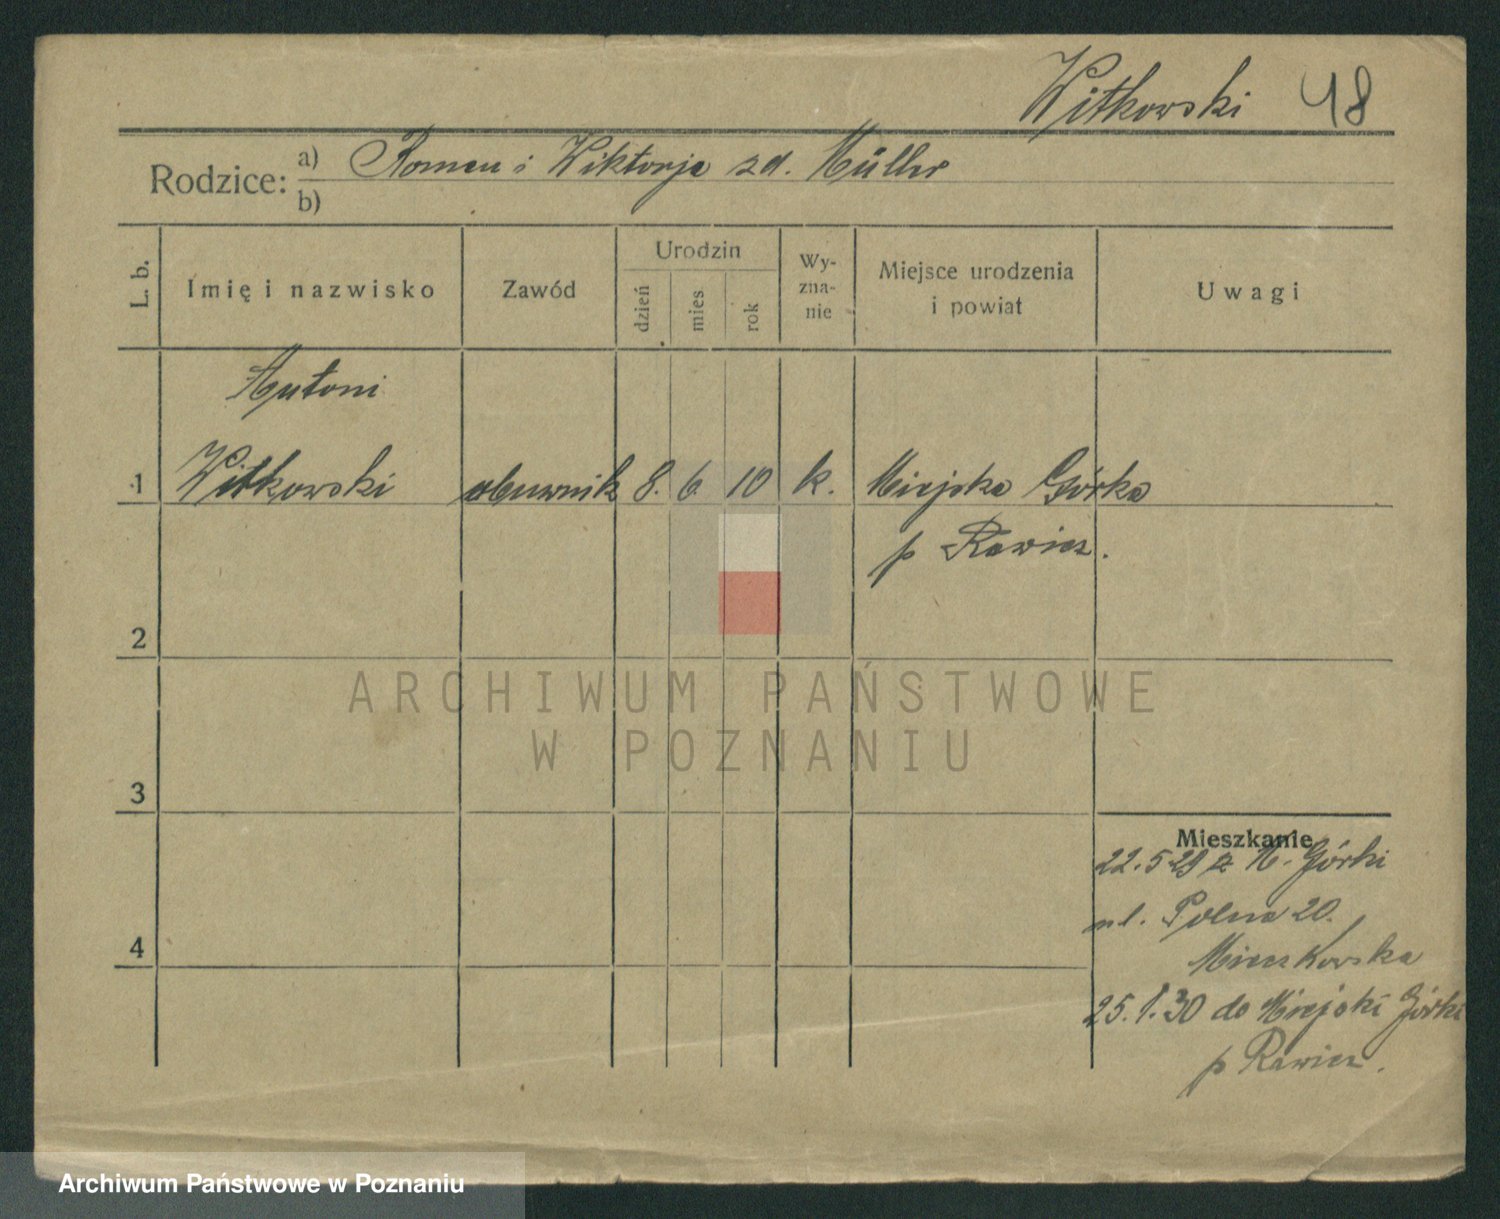 Witkowski 48
Rodzice: a) Roman i Wiktorja zd. Müller
b)
L. b.
Imię i nazwisko
Zawód
Urodzin
dzień
mies
rok
Wy-
zna-
nie
Miejsce urodzenia
i powiat
Uwagi
Antoni
1 Witkowski obuwnik 8. 6. 10 k. Miejska Górka
p Rawicz.
2
ARCHIWUM PAŃSTWOWE
W POZNANIU
3
Mieszkanie
22.5 29 z M. Górki
ul. Polna 20.
4
Mieszkowska
25.1.30 do Miejski Górki
p Rawicz.
Archiwum Państwowe w Poznaniu